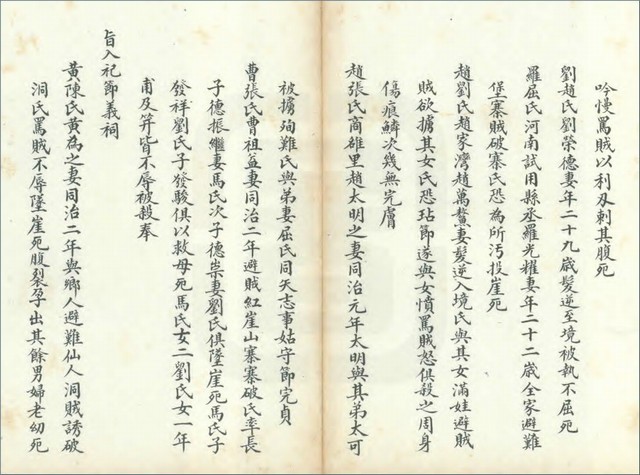 吟慢罵賊以利刃刺其腹死
劉趙氏劉榮德妻年二十九歲髮逆至境被執不屈死
羅屈氏河南試用縣丞羅光耀妻年二十二歲全家避難
堡寨賊破寨氏恐為所汚投崖死
趙劉氏趙家灣趙萬鰲妻髮逆入境氏與其女滿娃避賊
賊欲擄其女氏恐玷節遂與女憤罵賊怒俱殺之周身
傷痕鱗次幾無完膚
趙張氏商雒里趙太明之妻同治元年太明與其弟太可
被擄殉難氏與弟妻屈氏同矢志事姑守節完貞
曹張氏曹祖益妻同治二年避賊紅崖山寨寨破氏率長
子德振繼妻馬氏次子德崇妻劉氏俱墜崖死馬氏子
發祥劉氏子發駿俱以救母死馬氏女二劉氏女一年
甫及笄皆不辱被殺奉
旨入祀節義祠
黃陳氏黃為之妻同治二年與鄉人避難仙人洞賊誘破
洞氏罵賊不辱墜崖死腹裂孕出其餘男婦老幼死